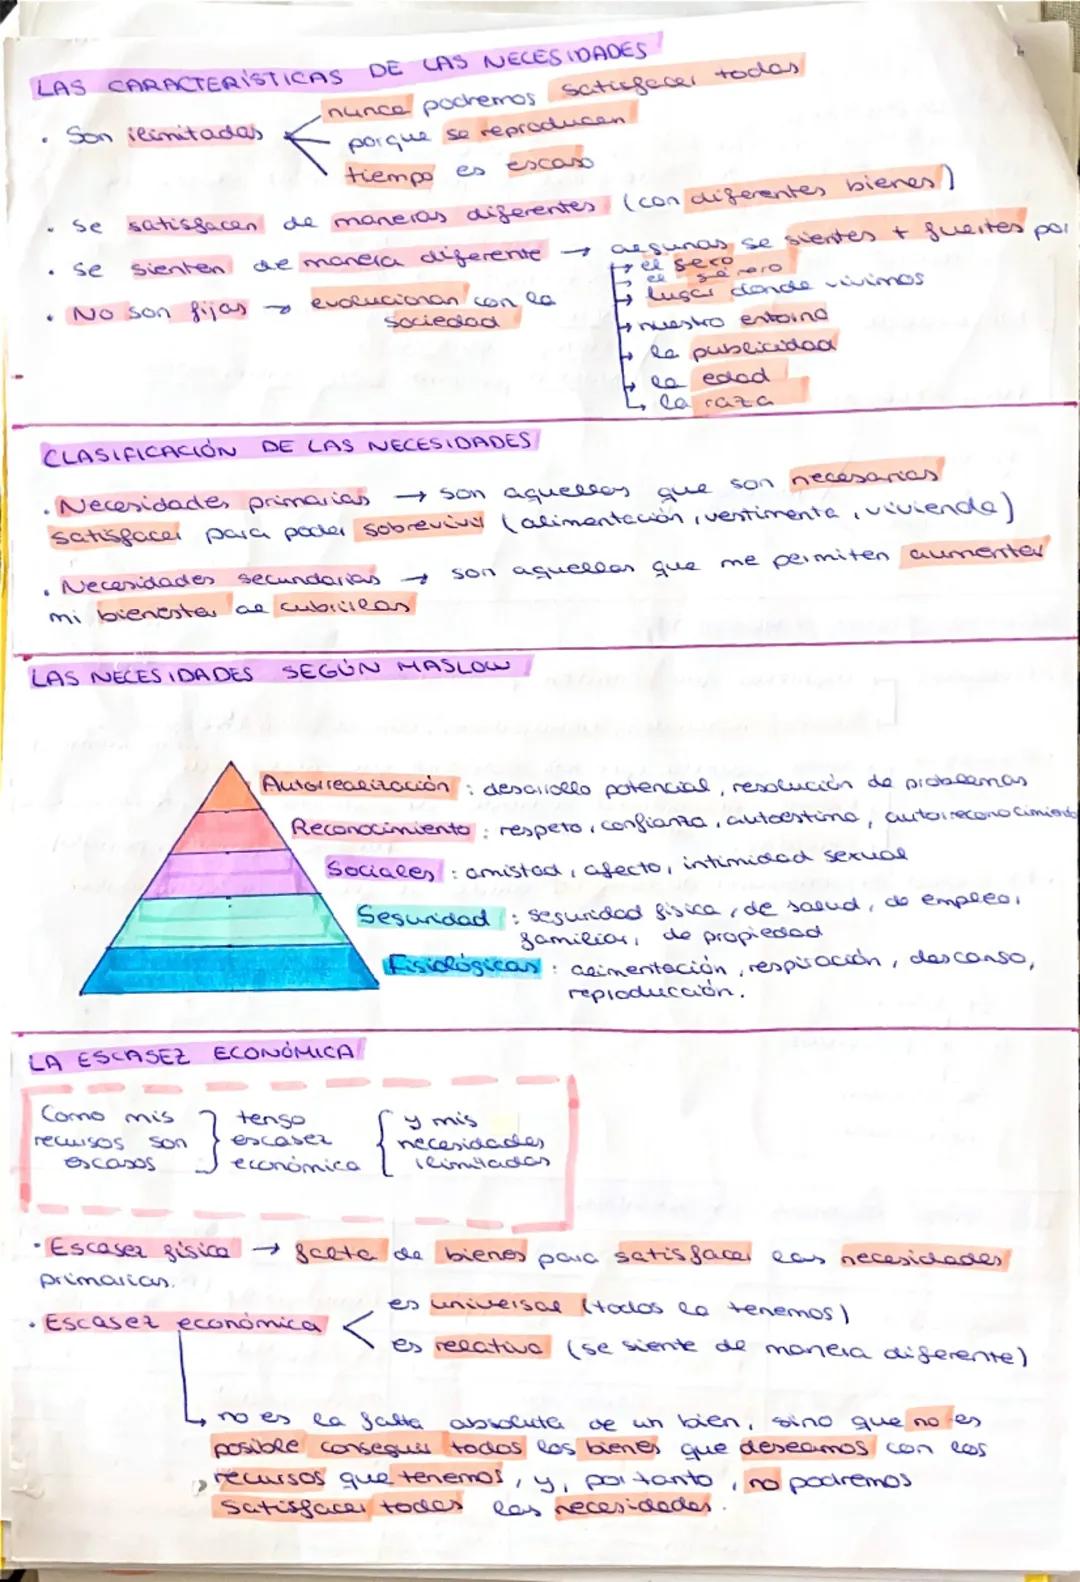 LAS CARACTERÍSTICAS DE LAS NECESIDADES
· Son ilimitadas
nunca podremos satisfacer todas
porque se reproducen
tiempo es escaso
· Se satisfacen de maneras diferentes (con diferentes bienes)
· Se sienten de manera diferente → algunas se sientes + fuertes por
→ el sexo
→ el género
→ lugar donde vivimos
→ nuestro entorno
→ la publicidad
→ la edad
→ la raza
· No son fijas → evolucionan con la
sociedad
CLASIFICACIÓN DE LAS NECESIDADES
· Necesidades primarias → son aquellas que son necesarias
satisfacer para poder sobrevivir (alimentación, vestimenta, vivienda)
· Necesidades secundarias → son aquellas que me permiten aumentar
mi bienestar al cubrirlas
LAS NECESIDADES SEGÚN MASLOW
Autorrealización : desarrollo potencial, resolución de problemas
Reconocimiento : respeto, confianza, autoestima, autorreconocimiento
Sociales : amistad, afecto, intimidad sexual
Seguridad : seguridad física, de salud, de empleo,
familiar, de propiedad
Fisiológicas : alimentación, respiración, descanso,
reproducción.
LA ESCASEZ ECONÓMICA
Como mis
recursos son
escasos
tengo
escasez
económica
y mis
necesidades
ilimitadas
· Escasez física → falta de bienes para satisfacer las necesidades
primarias.
· Escasez económica
es universal (todos la tenemos)
es relativa (se siente de manera diferente)
→ no es la falta absoluta de un bien, sino que no es
posible conseguir todos los bienes que deseamos con los
recursos que tenemos, y, por tanto, no podremos
satisfacer todas las necesidades.